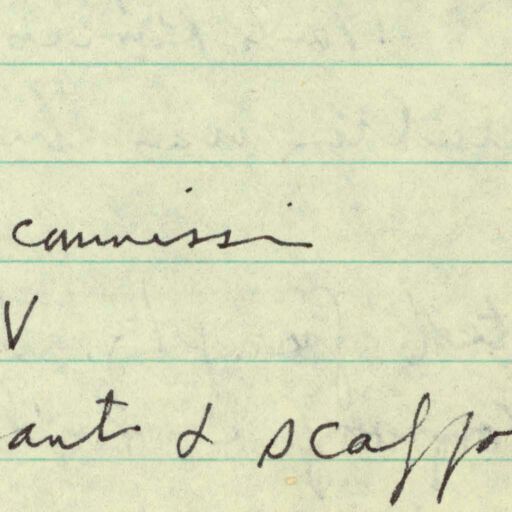 commissi
V
ant & scaffo